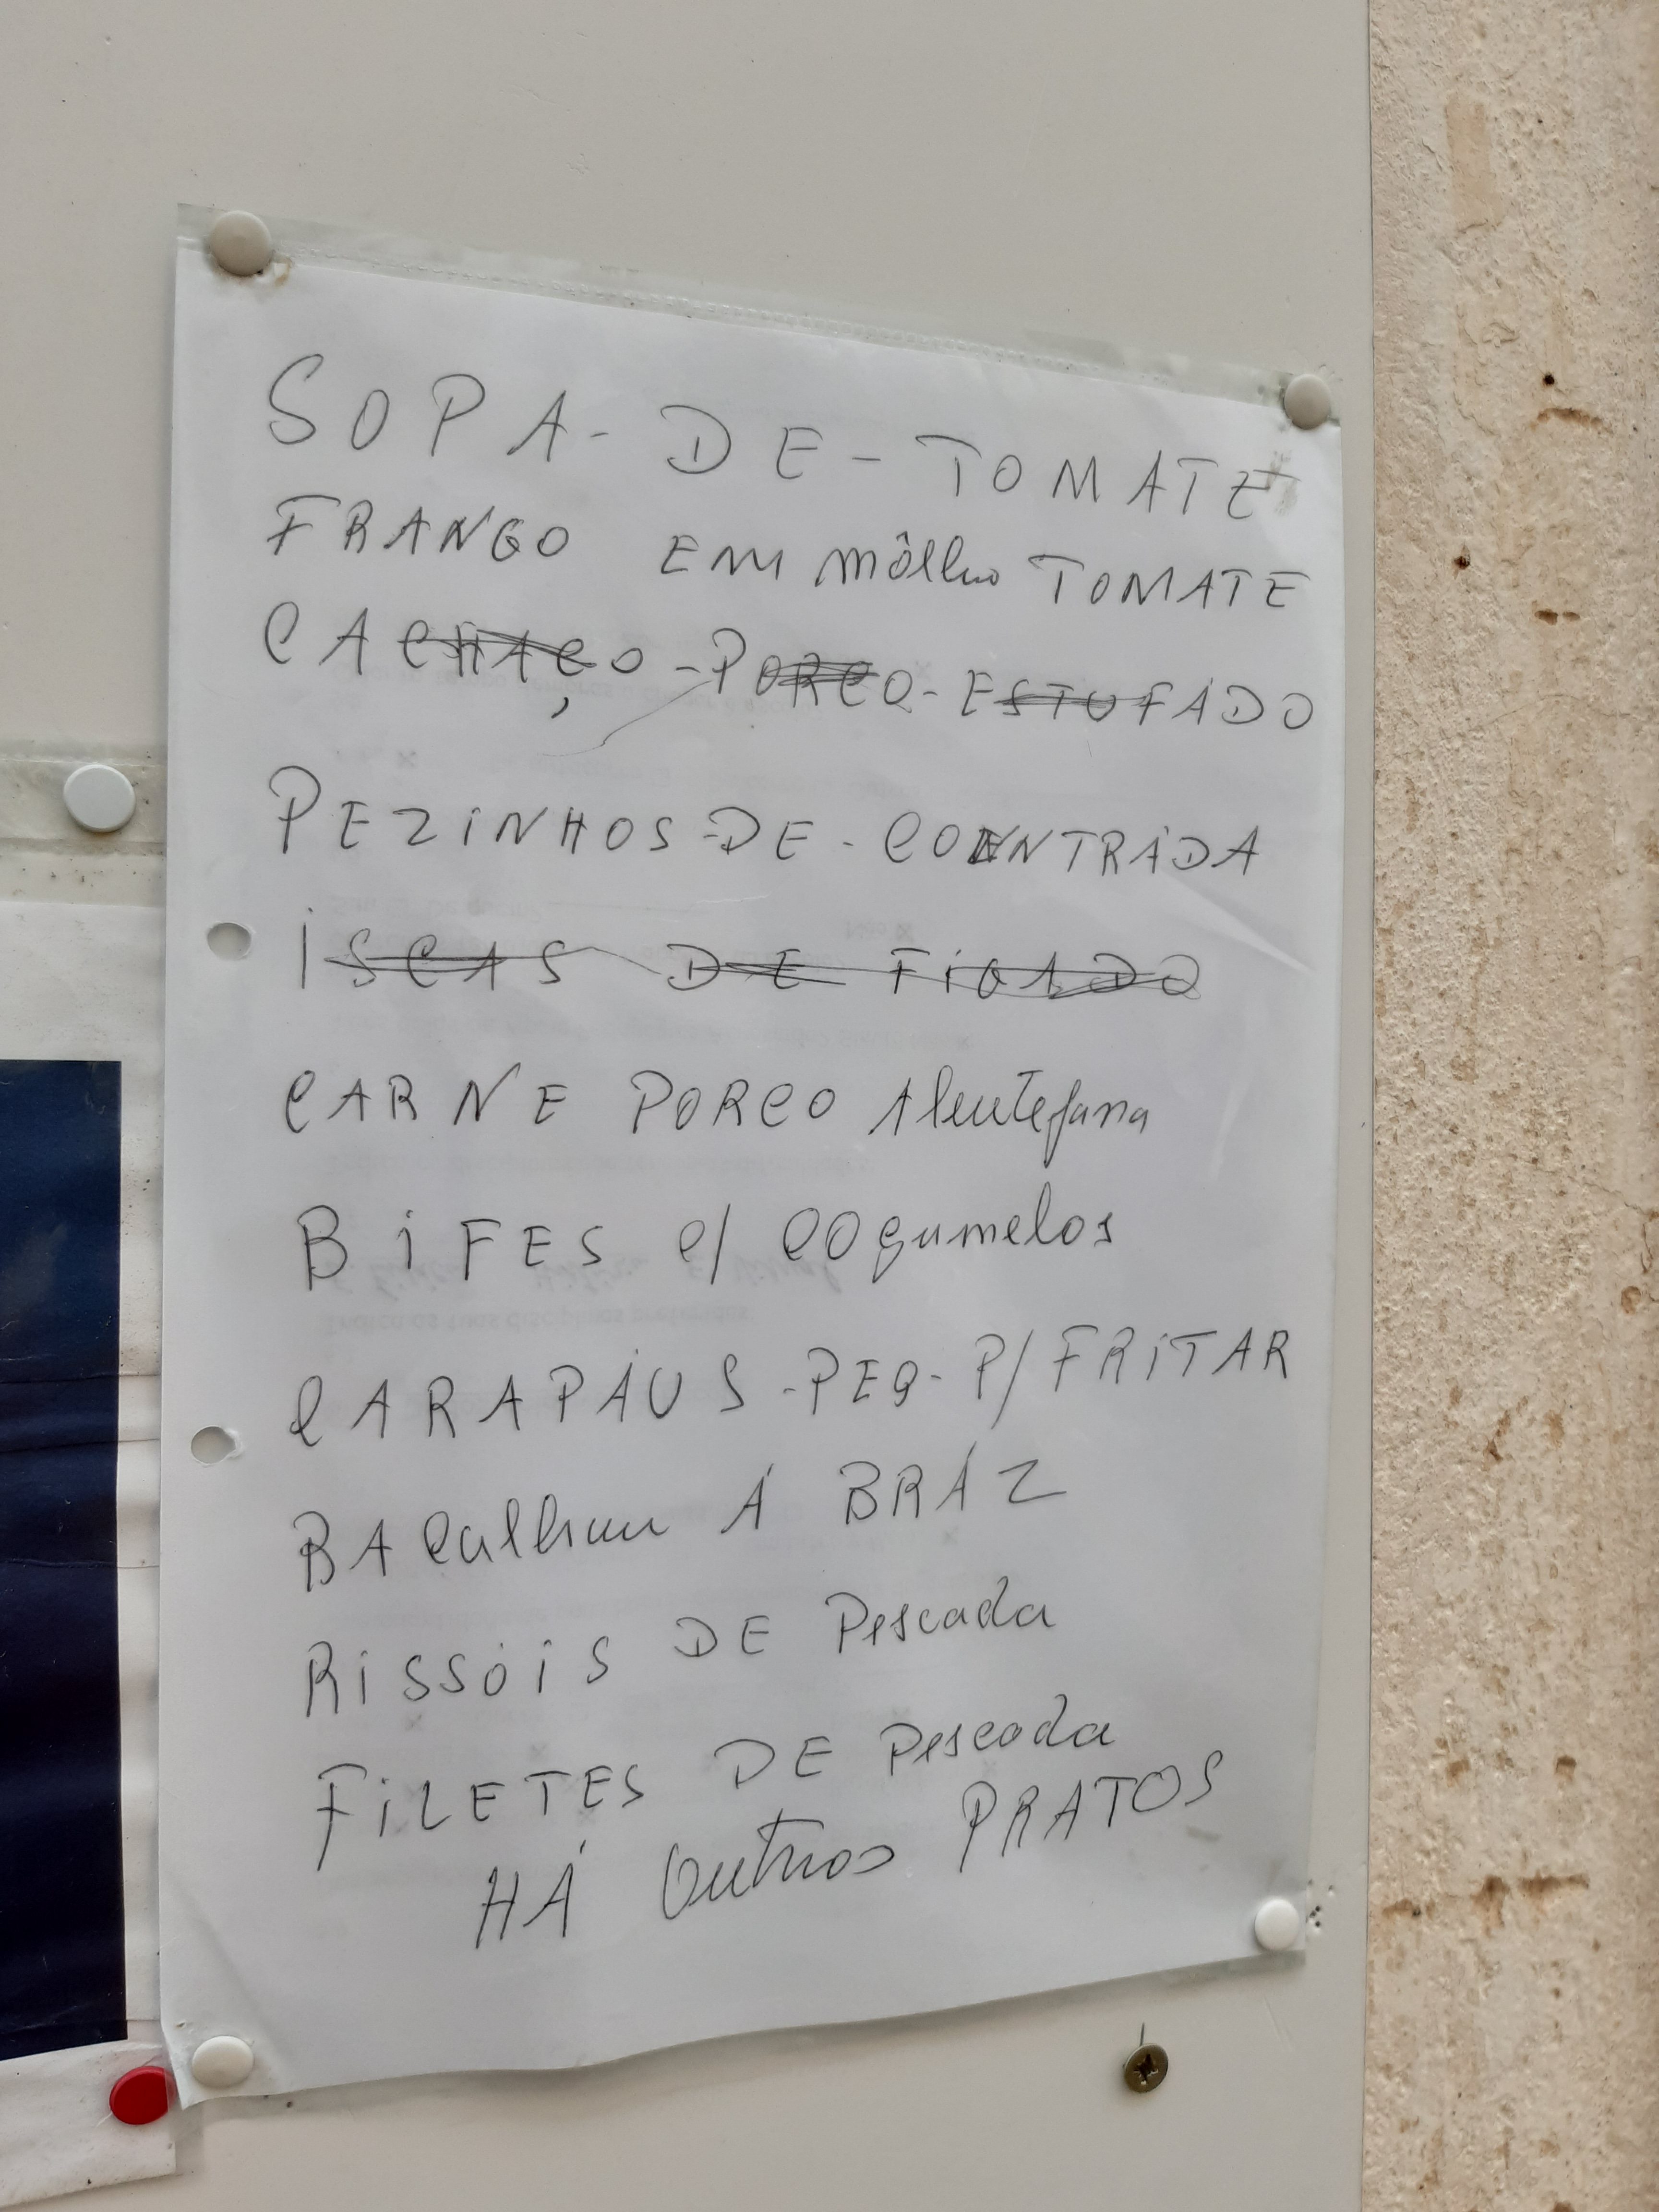 SOPA-DE-TOMATE
FRANGO EM môlho TOMATE
CACHAÇO-PORCO-ESTUFADO
PEZINHOS-DE-COENTRADA
ISCAS DE FIGADO
CARNE PORCO Alentejana
BIFES c/ COgumelos
CARAPÁUS-PEQ-P/FRITAR
BACalhau Á BRÁZ
RISSÓIS DE Pescada
FILETES DE Pescada
HÁ Outros PRATOS